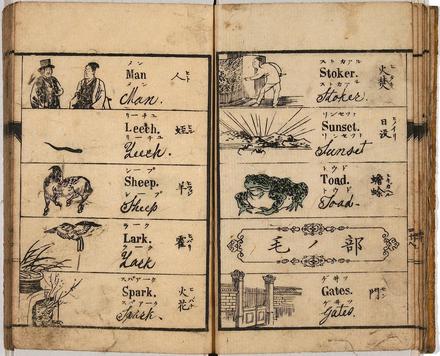 Man
人 ヒト
Man.
リーチ
Leech.
蛭
リーチ
Leech.
シープ
Sheep.
羊
シープ
Sheep
ラーク
Lark.
ラーク
Lark
スパアーク
Spark.
火花
スパアーク
Spark.
ストカアル
Stoker.
火焚
ストカアル
Stoker.
Sunset.
日没
Sunset
トウド
Toad.
蟾蜍
トウド
Toad.
毛ノ部
ゲヰツ
Gates.
門 モン
ゲヰツ
Gates.